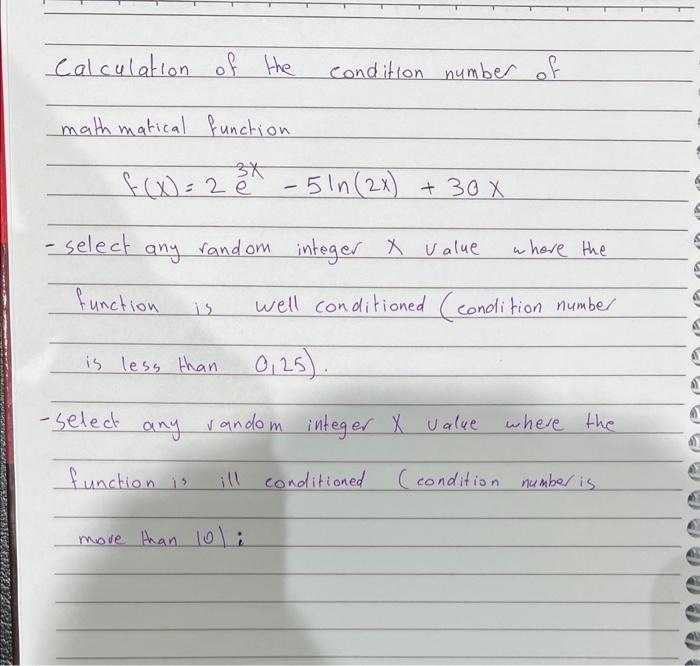 Calculation of the condition number of
mathmatical function
f(x) = 2 e^3x - 5 ln(2x) + 30 x
- select any random integer X value where the
function is well conditioned (condition number
is less than 0,25).
- select any random integer X value where the
function is ill conditioned (condition number is
more than 10) :